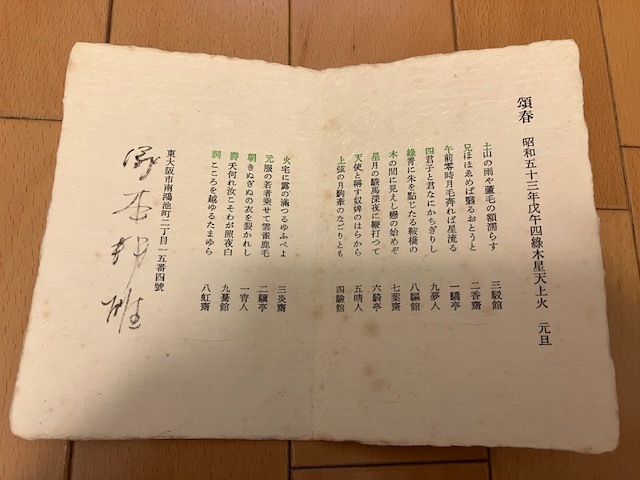 頌春 昭和五十三年戊午四綠木星天上火 元旦
土山の雨や蘆毛の額濡らす 三駁館
兄ほほゑめば翳るおとうと 二香齋
午前零時月毛奔れば星流る 一驕亭
四君子と君なにかちぎりし 九夢人
綠靑に朱を點じたる鞍橋の 八驅館
木の間に見えし巒の始めぞ 七葉齋
星月の駿馬深夜に鞭打つて 六騎亭
天使と稱す奴婢のはらから 五晴人
上弦の月駒牽のなごりとも 四驗館
火宅に露の滿つるゆふべよ 三炎齋
元服の若者乘せて雲雀鹿毛 二驥亭
朝きぬぎぬの衣を裂かれし 一宵人
壽夭何れ汝こそわが照夜白 九驀館
詞こころを越ゆるたまゆら 八虹齋
東大阪市南鴻池町二丁目一五番四號
塚本邦雄